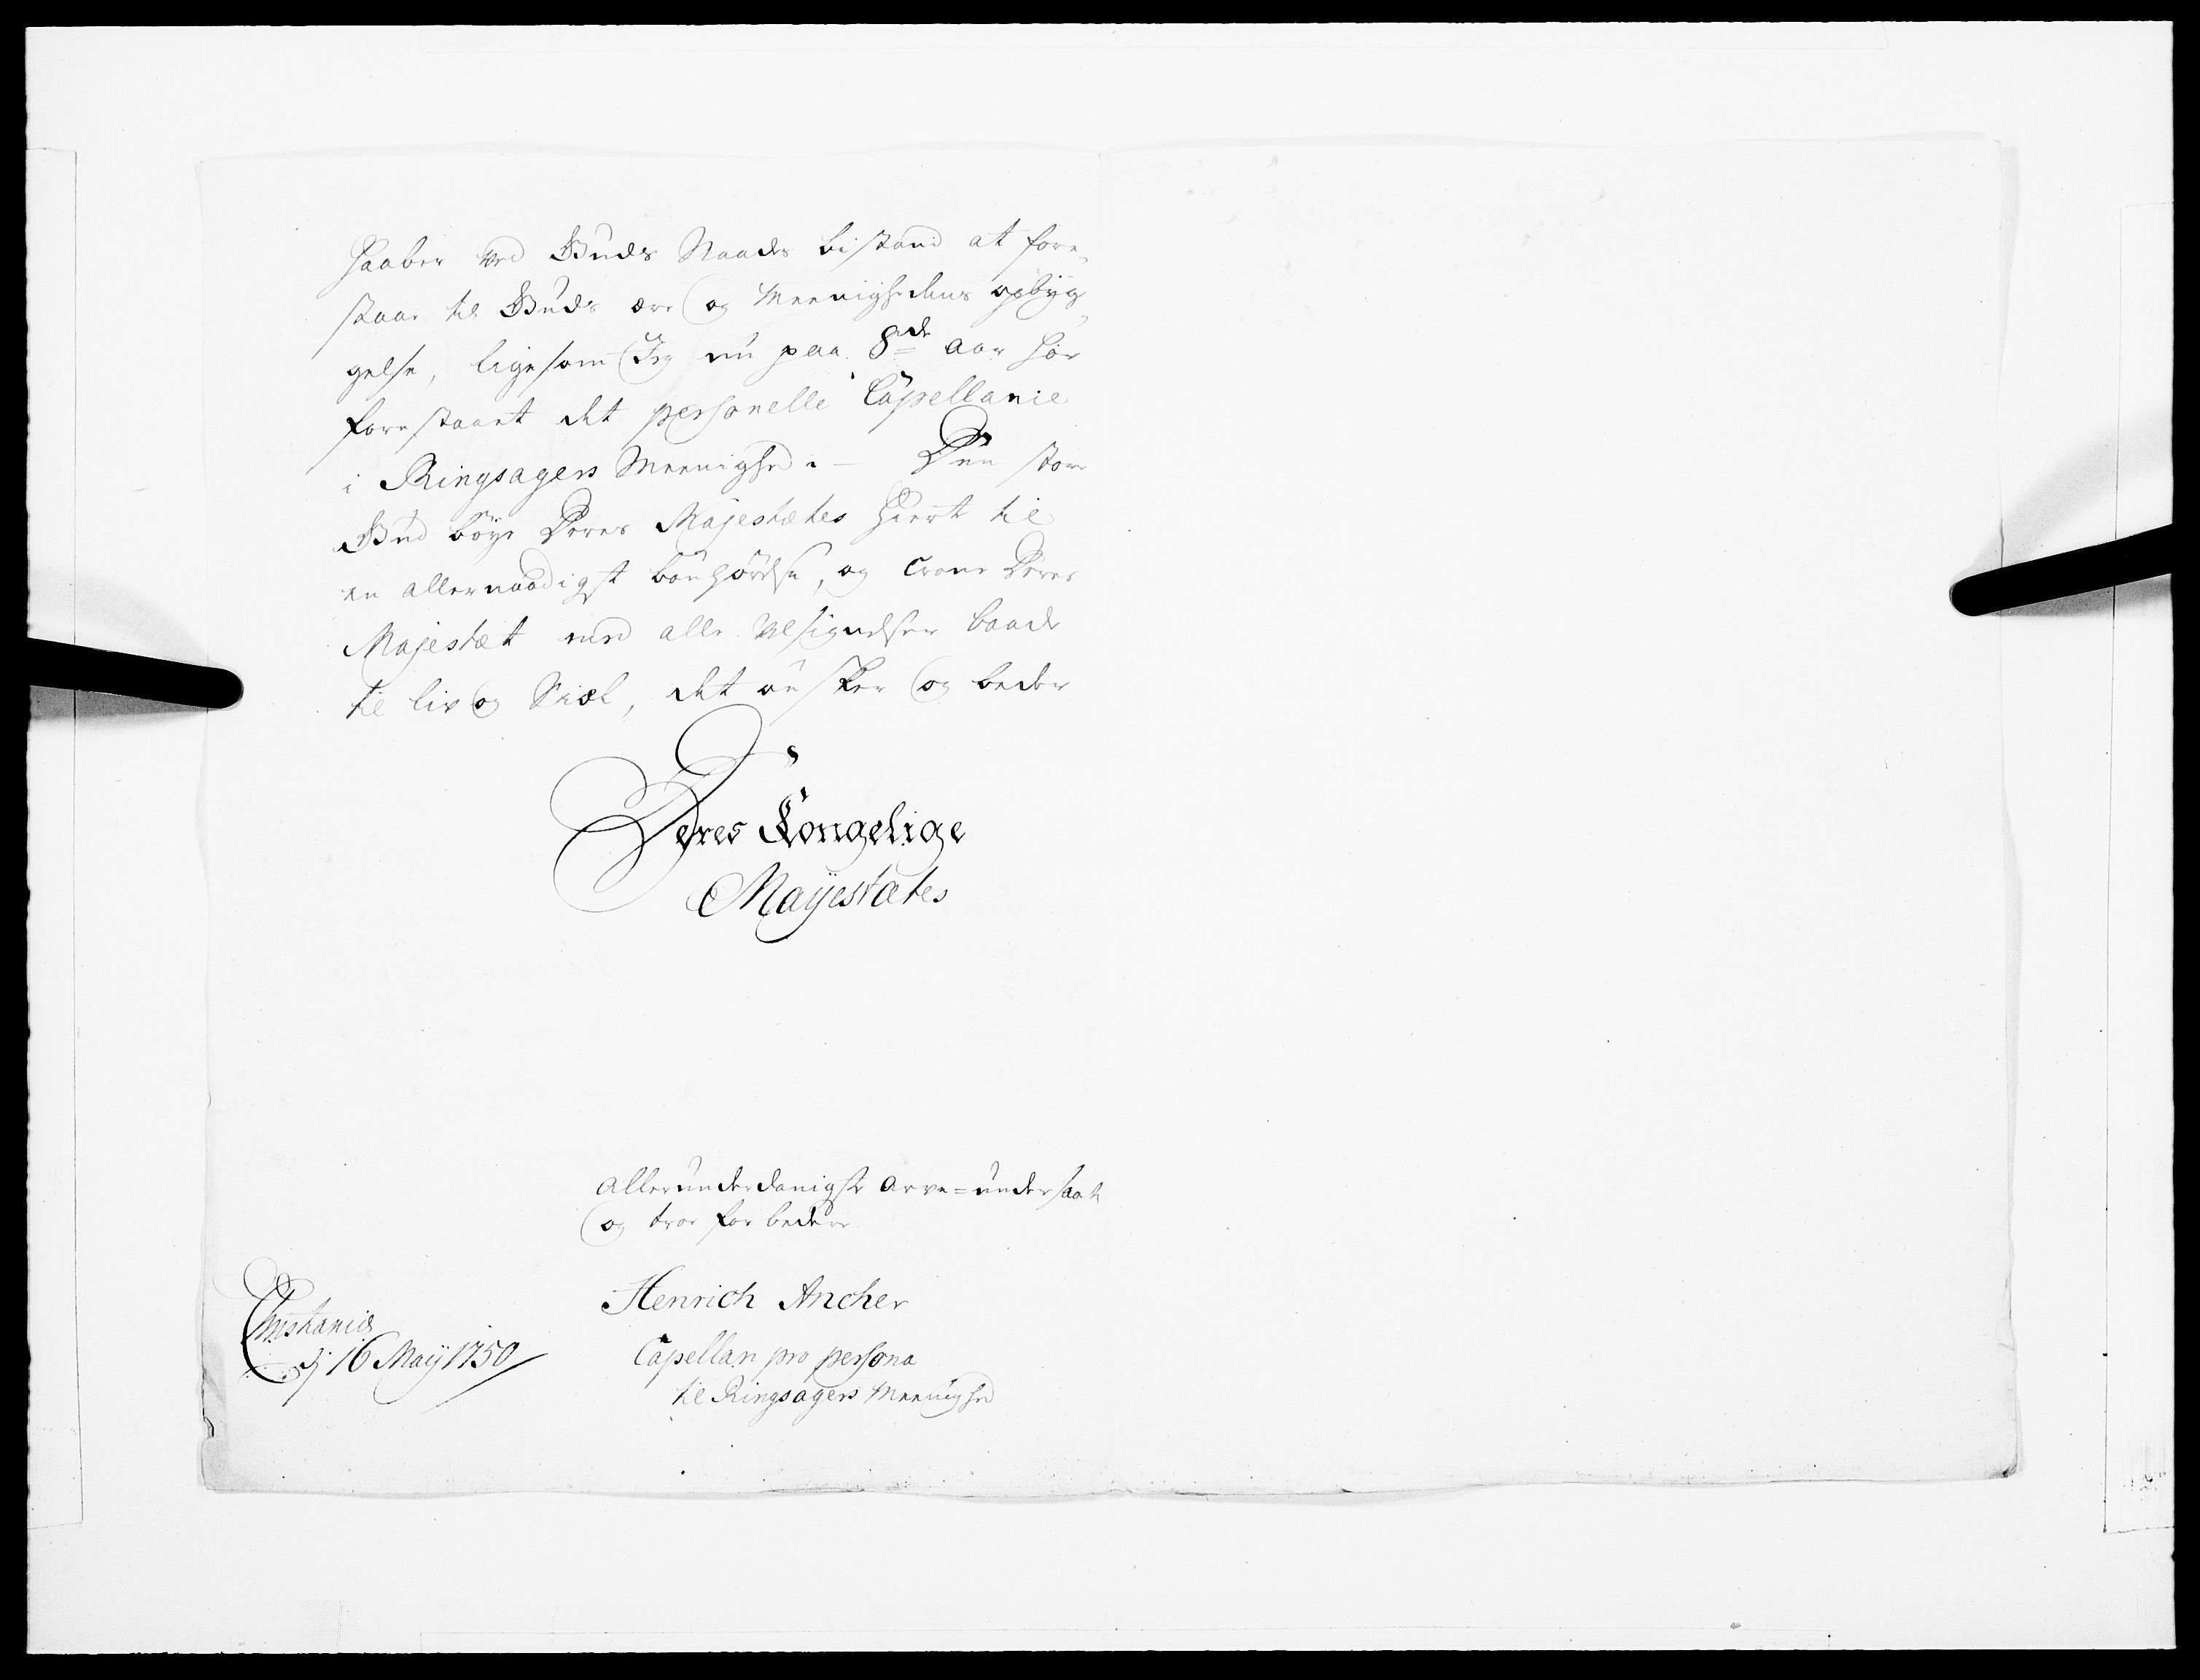 haaber ved Guds Naades bistand at fore-
staae til Guds ære og Meenighedens opbyg-
gelse, ligesom Jeg nu paa 8de aar har
forestaaet det personelle Capellanie
i Ringsagers Meenighed. — Den store
Gud böye Deres Majestætes Hiert til
en allernaadigst bönhörelse, og Crone Deres
Majestæt med alle Velsignelser baade
til liv og Siæl, det önsker og beder
Deres Kongelige
Mayestætes
allerunderdanigste arve=undersaat
og troe forbedere
Henrich Ancher
Capellan pro persona
til Ringsagers Meenighed
Christania
dj 16 Maij 1750